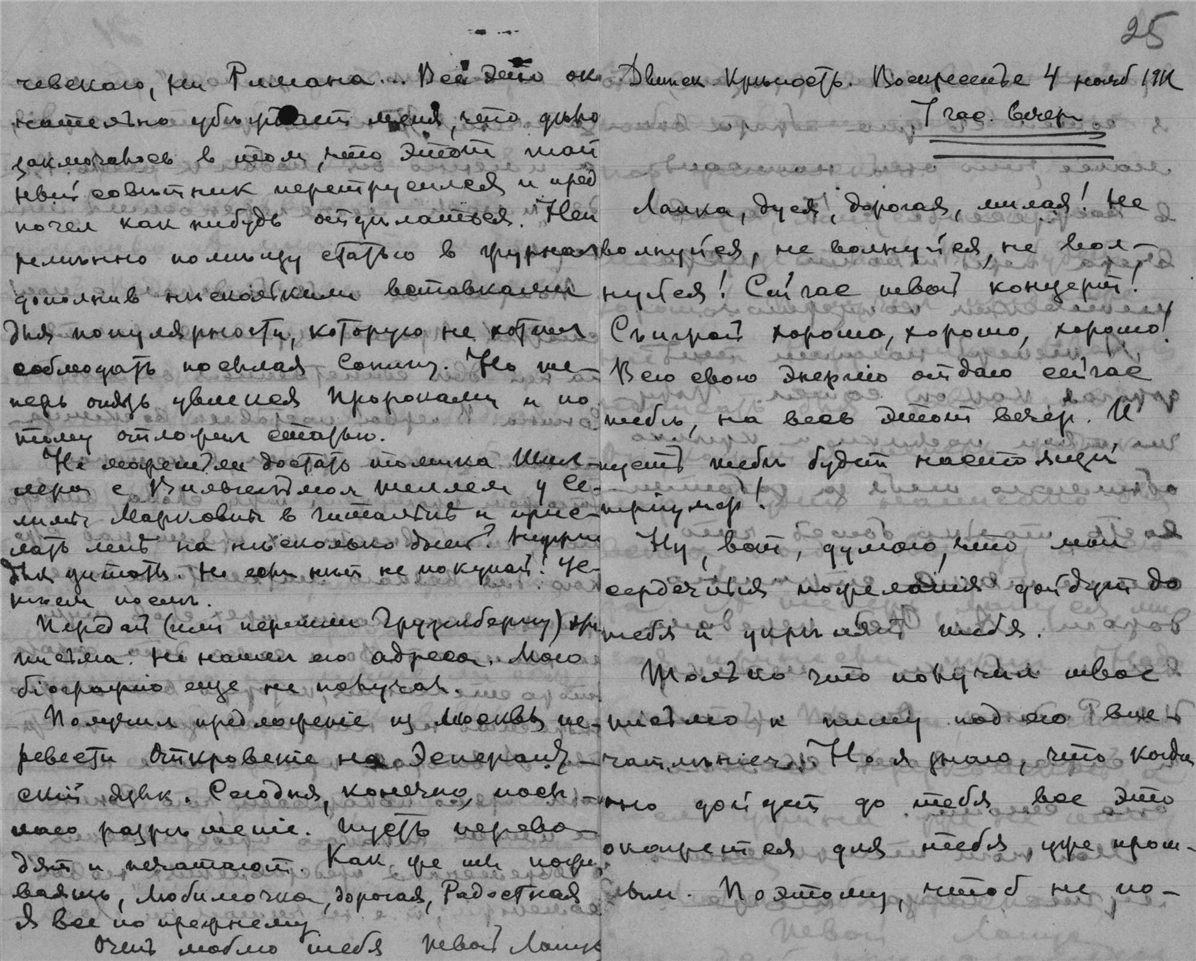 чевскаго, ни Римана... Все это око
нчательно убѣждает меня, что дѣло
заключалось в том, что этот тай
ный совѣтник перетрусился и пред
почел как нибудь отдѣлаться. Неп
ремѣнно помѣщу статью в журнал
дополнив нѣсколькими вставками
для популярности, которую не хотѣл
соблюдать посылая Сонину. Но те-
перь опять увлекся Пророками и по
тому отложил статью.
Не можешь ли достать томика Шил-
лера с Вильгельмом Теллем у Се-
лимы Марковны в читальнѣ и прис-
лать мнѣ на нѣсколько дней? Нужен
для цитаты. Но если нѣт не покупай!
послѣ.
Передай (или перешли Грузенбергу) три
письма. Не нашел его адреса. Мою
біографію еще не получал.
Получил предложеніе из Москвы пе-
ревести Откровеніе на Эсперант-
скій язык. Сегодня, конечно, посы-
лаю разрѣшеніе. Пусть перево-
дят и печатают. Как же ты пожи
ваешь, Любимочка, дорогая, Радостная
Я все по прежнему
Очень люблю тебя твой Лапка
25
Двинск Крѣпость. Воскресенье 4 нояб 1912
7 час. вечера
Лапка, дуся, дорогая, милая! Не
волнуйся, не волнуйся, не вол-
нуйся! Сейчас твой концерт!
Сыграй хорошо, хорошо, хорошо!
Всю свою энергію отдаю сейчас
тебѣ, на весь этот вечер. И
пусть тебѣ будет настоящій
тріумф!
Ну, вот, думаю, что мои
сердечныя пожеланія дойдут до
тебя и укрѣпят тебя.
Только что получил твое
письмо и пишу под его впе-
чатлѣніем. Но я знаю, что когда
оно дойдет до тебя все это
окажется для тебя уже прош-
лым. Поэтому, чтоб не по-